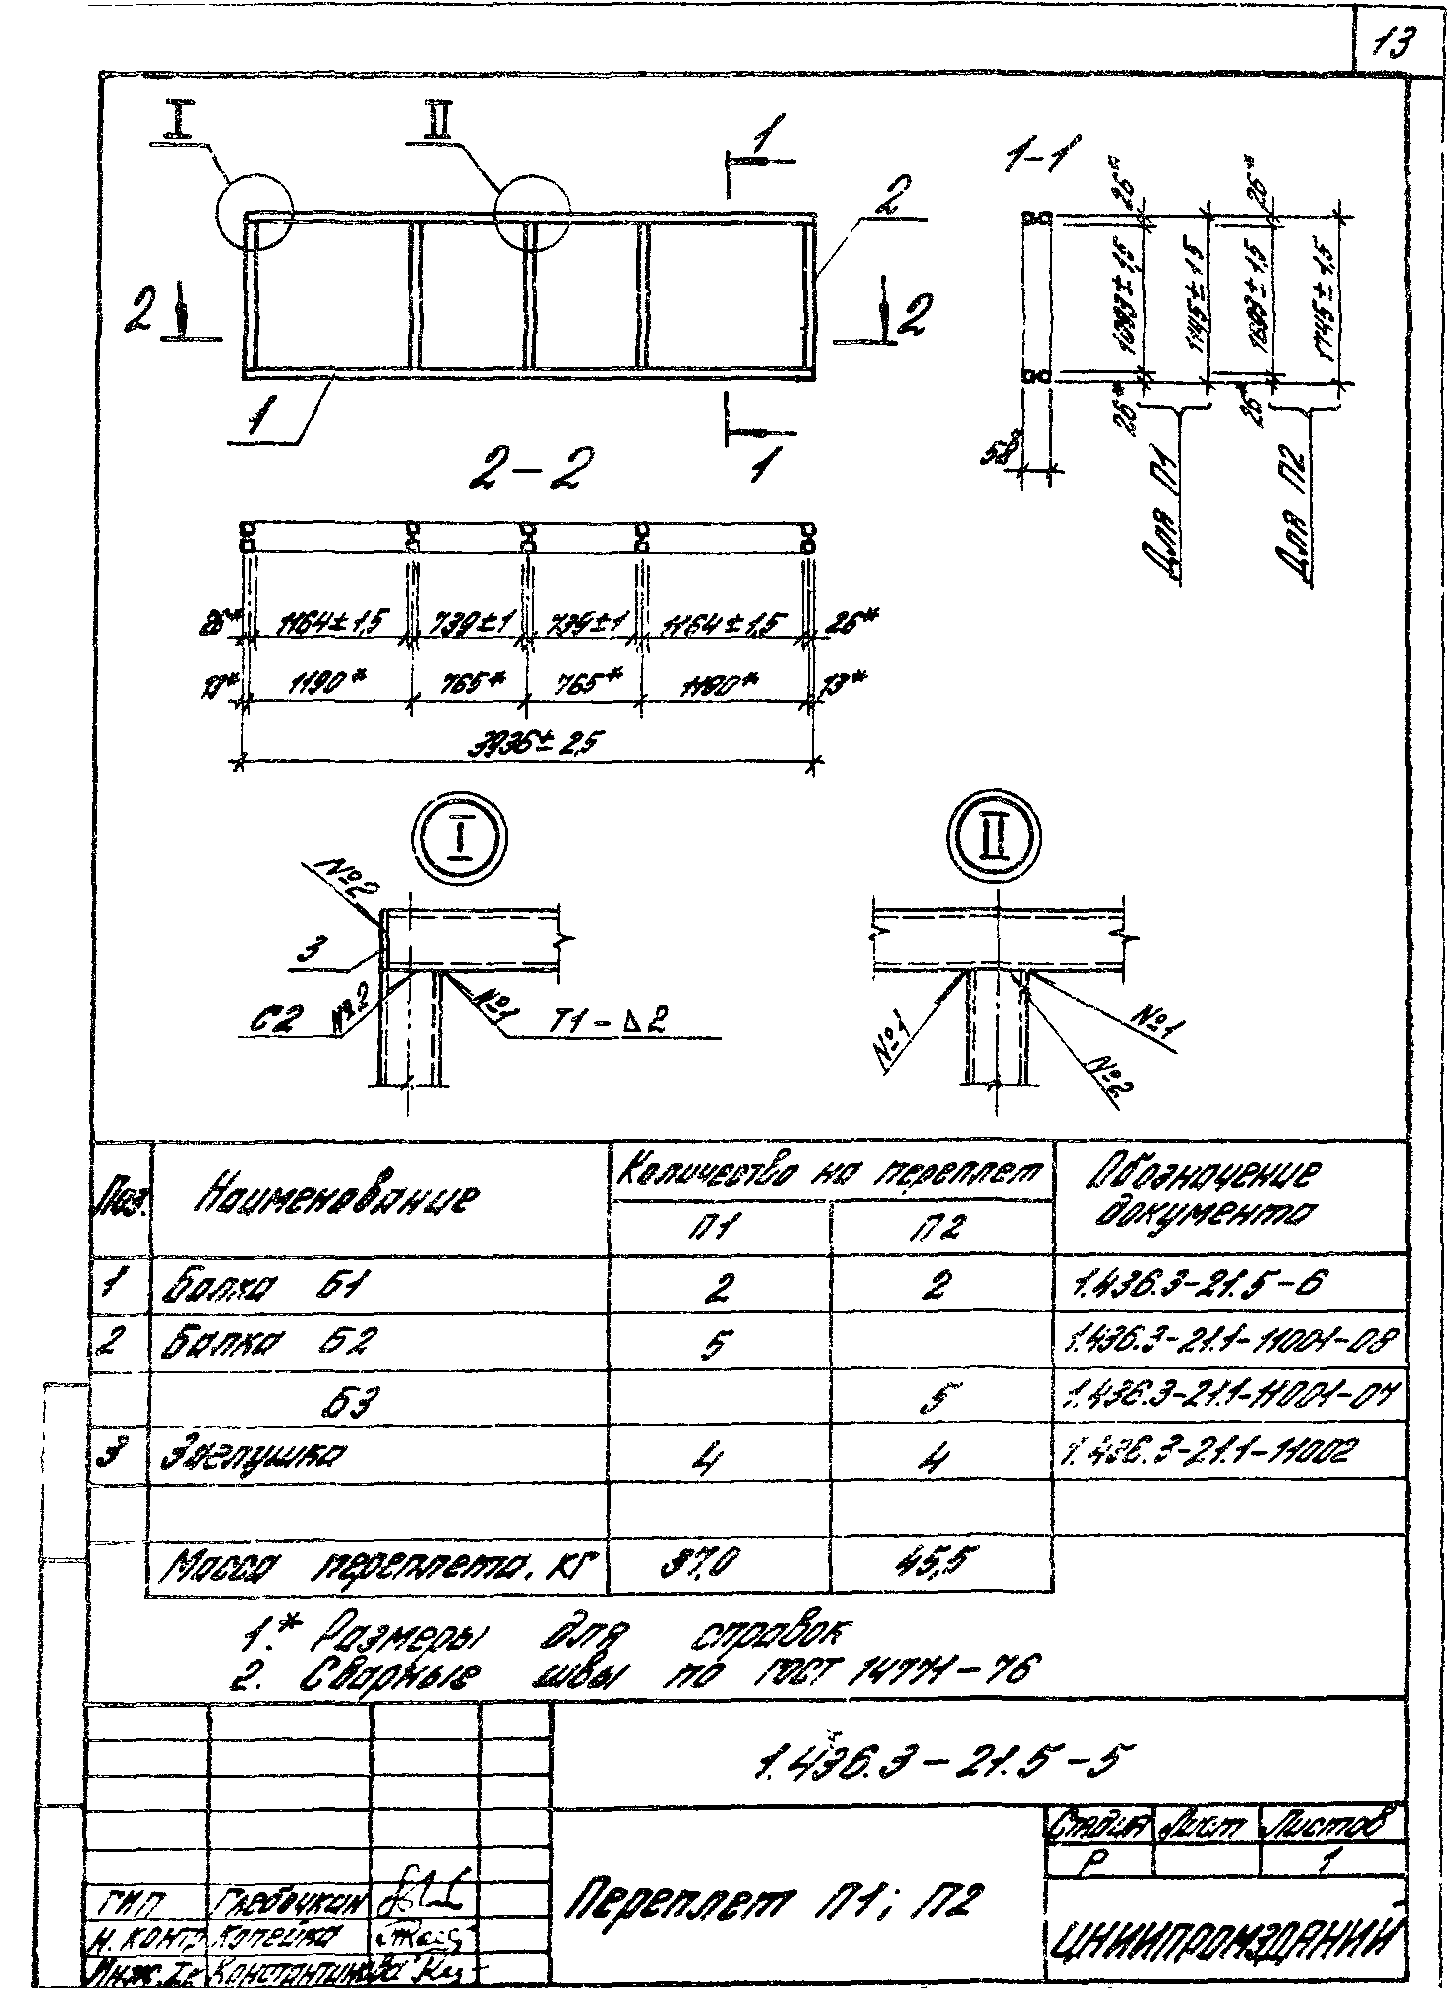 13
I
II
1
1-1
2
2
2
1
1
26*
26*
1093±1,5
1145±1,5
1693±1,5
1745±1,5
26*
26*
58*
Для П1
Для П2
2-2
26*
1164±1,5
739±1
739±1
1164±1,5
26*
13*
1190*
765*
765*
1190*
13*
3936±2,5
I
II
№2
3
С2
№2
№1
Т1-Δ2
№1
№1
№2
Поз.
Наименование
Количество на переплет
Обозначение
документа
П1
П2
1 Балка Б1 2 2 1.436.3-21.5-6
2 Балка Б2 5 1.436.3-21.1-11001-08
Б3 5 1.436.3-21.1-11001-07
3 Заглушка 4 4 1.436.3-21.1-11002
Масса переплета, кг 37,0 45,5
1.* Размеры для справок
2. Сварные швы по ГОСТ 14771-76
1.436.3-21.5-5
Переплет П1; П2
Стадия Лист Листов
Р 1
ЦНИИПРОМЗДАНИЙ
ГИП
Н. контр. Копейка
Инж. Константинова